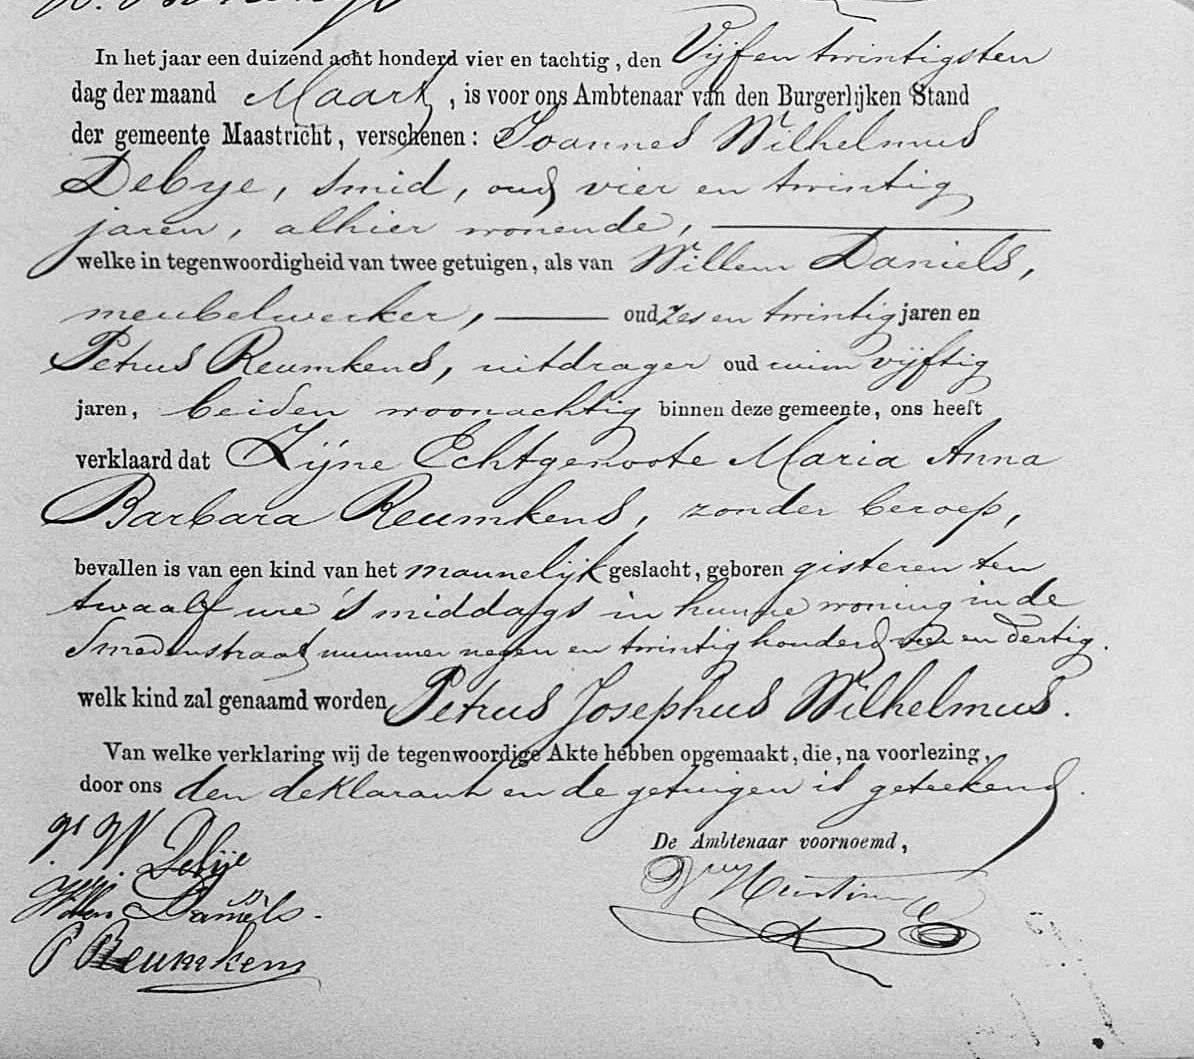 In het jaar een duizend acht honderd vier en tachtig, den Vijfen twintigsten
dag der maand Maart, is voor ons Ambtenaar van den Burgerlijken Stand
der gemeente Maastricht, verschenen: Joannes Wilhelmus
Debye, smid, oud vier en twintig
jaren, alhier wonende,
welke in tegenwoordigheid van twee getuigen, als van Willem Daniels,
meubelwerker, oud zes en twintig jaren en
Petrus Reumkens, uitdrager oud ruim vijftig
jaren, beiden woonachtig binnen deze gemeente, ons heeft
verklaard dat Zijne Echtgenoote Maria Anna
Barbara Reumkens, zonder beroep,
bevallen is van een kind van het mannelijk geslacht, geboren gisteren ten
twaalf ure 's middags in hunne woning in de
Smedenstraat nummer negen en twintig honderd vier en dertig.
welk kind zal genaamd worden Petrus Josephus Wilhelmus.
Van welke verklaring wij de tegenwoordige Akte hebben opgemaakt, die, na voorlezing,
door ons den deklarant en de getuigen is geteekend.
De Ambtenaar voornoemd,
J. W. Debije
Willem Daniëls.
P Reumkens